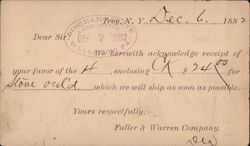 Troy, N. Y. Dec. 6. 1882
Dear Sir:
We herewith acknowledge receipt of
your favor of the 4 enclosing CK $ 24 00 for
Stove ord'd which we will ship as soon as possible.
Yours respectfully,
Fuller & Warren Company.